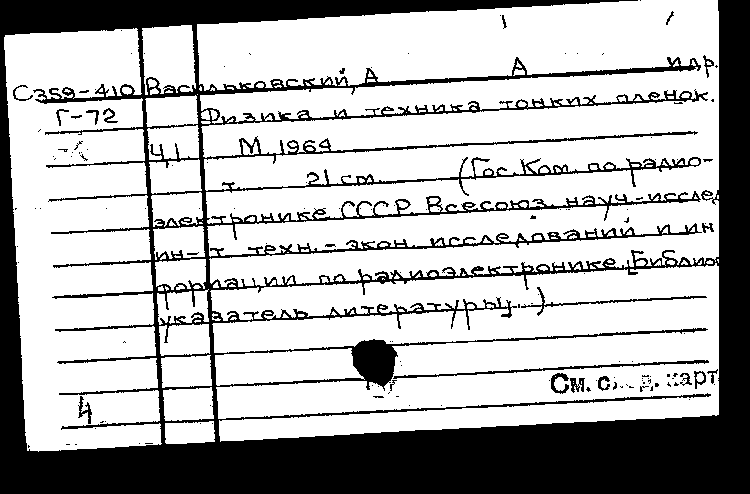 С359-410 Васильковский, А А и др.
Г-72 Физика и техника тонких пленок.
Ч,1 М,1964
т. 21 см (Гос. Ком. по радио-
электронике СССР. Всесоюз. науч.-исслед
ин-т техн.-экон. исследований и ин
формации по радиоэлектронике. [Библиог
указатель литературы ).
4
См. с д. карт